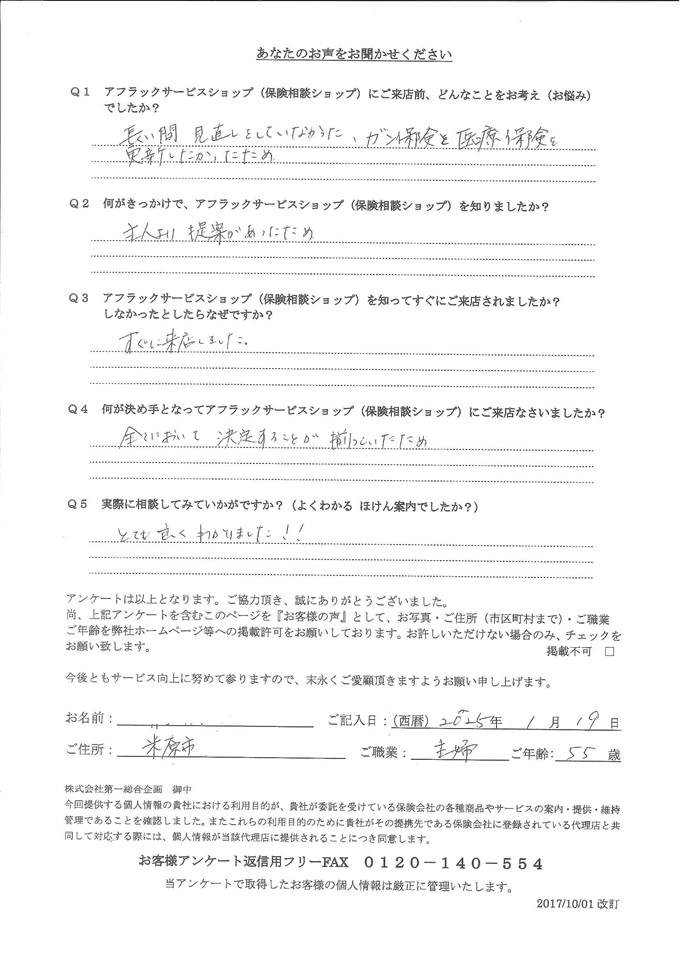 あなたのお声をお聞かせください
Q1 アフラックサービスショップ（保険相談ショップ）にご来店前、どんなことをお考え（お悩み）
でしたか？
長い間 見直しをしていなかった、ガン保険と医療保険を
更新したかったため
Q2 何がきっかけで、アフラックサービスショップ（保険相談ショップ）を知りましたか？
主人より 提案があったため
Q3 アフラックサービスショップ（保険相談ショップ）を知ってすぐにご来店されましたか？
しなかったとしたらなぜですか？
すぐに来店しました。
Q4 何が決め手となってアフラックサービスショップ（保険相談ショップ）にご来店なさいましたか？
全てにおいて 決定することが 揃っていたため
Q5 実際に相談してみていかがですか？（よくわかる ほけん案内でしたか？）
とても良く わかりました！！
アンケートは以上となります。ご協力頂き、誠にありがとうございました。
尚、上記アンケートを含むこのページを『お客様の声』として、お写真・ご住所（市区町村まで）・ご職業
ご年齢を弊社ホームページ等への掲載許可をお願いしております。お許しいただけない場合のみ、チェックを
お願い致します。
掲載不可 □
今後ともサービス向上に努めて参りますので、末永くご愛顧頂きますようお願い申し上げます。
お名前： ご記入日：（西暦）2025年 1月 19日
ご住所： 米原市 ご職業： 主婦 ご年齢： 55 歳
株式会社第一総合企画 御中
今回提供する個人情報の貴社における利用目的が、貴社が委託を受けている保険会社の各種商品やサービスの案内・提供・維持
管理であることを確認しました。またこれらの利用目的のために貴社がその提携先である保険会社に登録されている代理店と共
同して対応する際には、個人情報が当該代理店に提供されることにつき同意します。
お客様アンケート返信用フリーFAX 0120－140－554
当アンケートで取得したお客様の個人情報は厳正に管理いたします。
2017/10/01 改訂